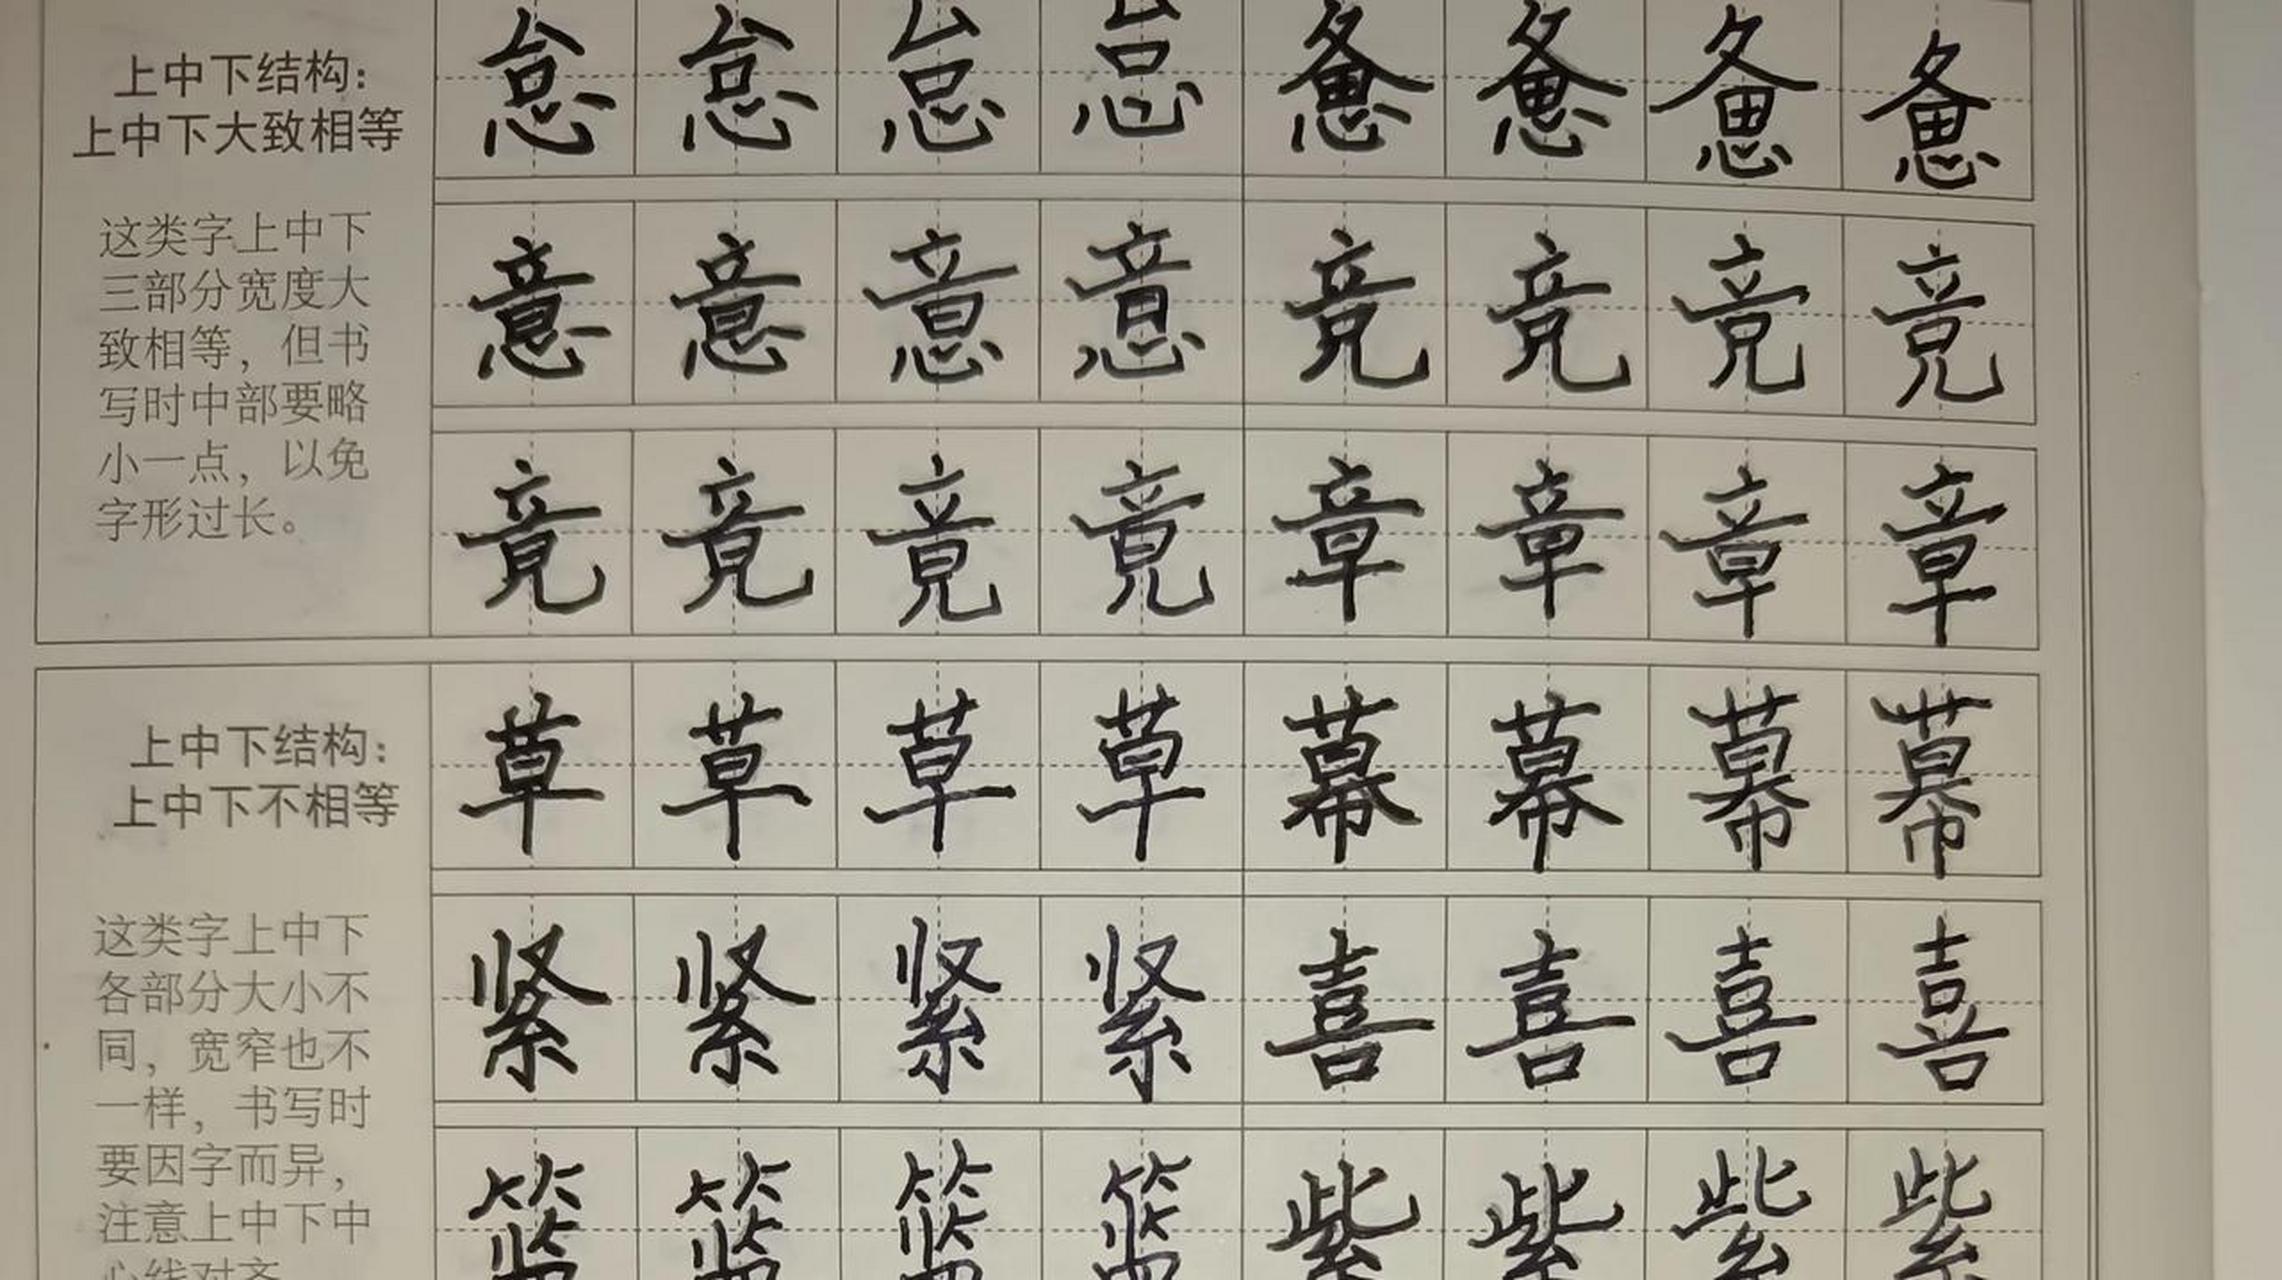 上中下结构：
上中下大致相等
这类字上中下
三部分宽度大
致相等，但书
写时中部要略
小一点，以免
字形过长。
怠怠怠怠惫惫惫惫
意意意意竞竞竞竞
竟竟竟竟章章章章
上中下结构：
上中下不相等
这类字上中下
各部分大小不
同，宽窄也不
一样，书写时
要因字而异，
注意上中下中
心线对齐
草草草草幕幕幕幕
紧紧紧紧喜喜喜喜
篮篮篮篮紫紫紫紫